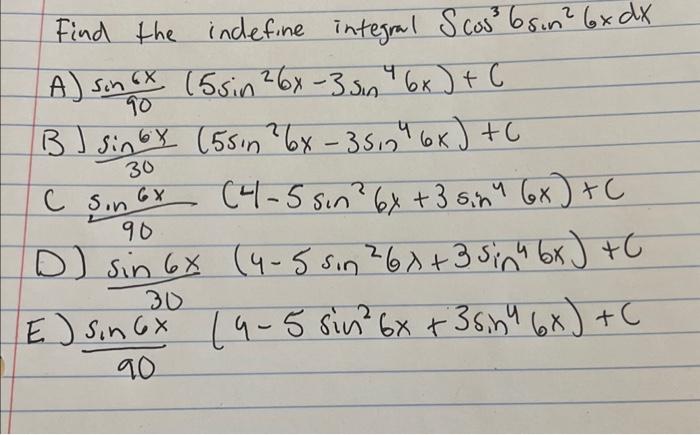 Find the indefine integral ∫cos³ 6sin² 6x dx
A) sin 6x/90 (5sin²6x - 3sin⁴6x) + C
B) sin 6x/30 (5sin²6x - 3sin⁴6x) + C
C sin 6x/90 (4 - 5sin²6x + 3sin⁴6x) + C
D) sin 6x/30 (4 - 5sin²6x + 3sin⁴6x) + C
E) sin 6x/90 (4 - 5sin²6x + 3sin⁴6x) + C